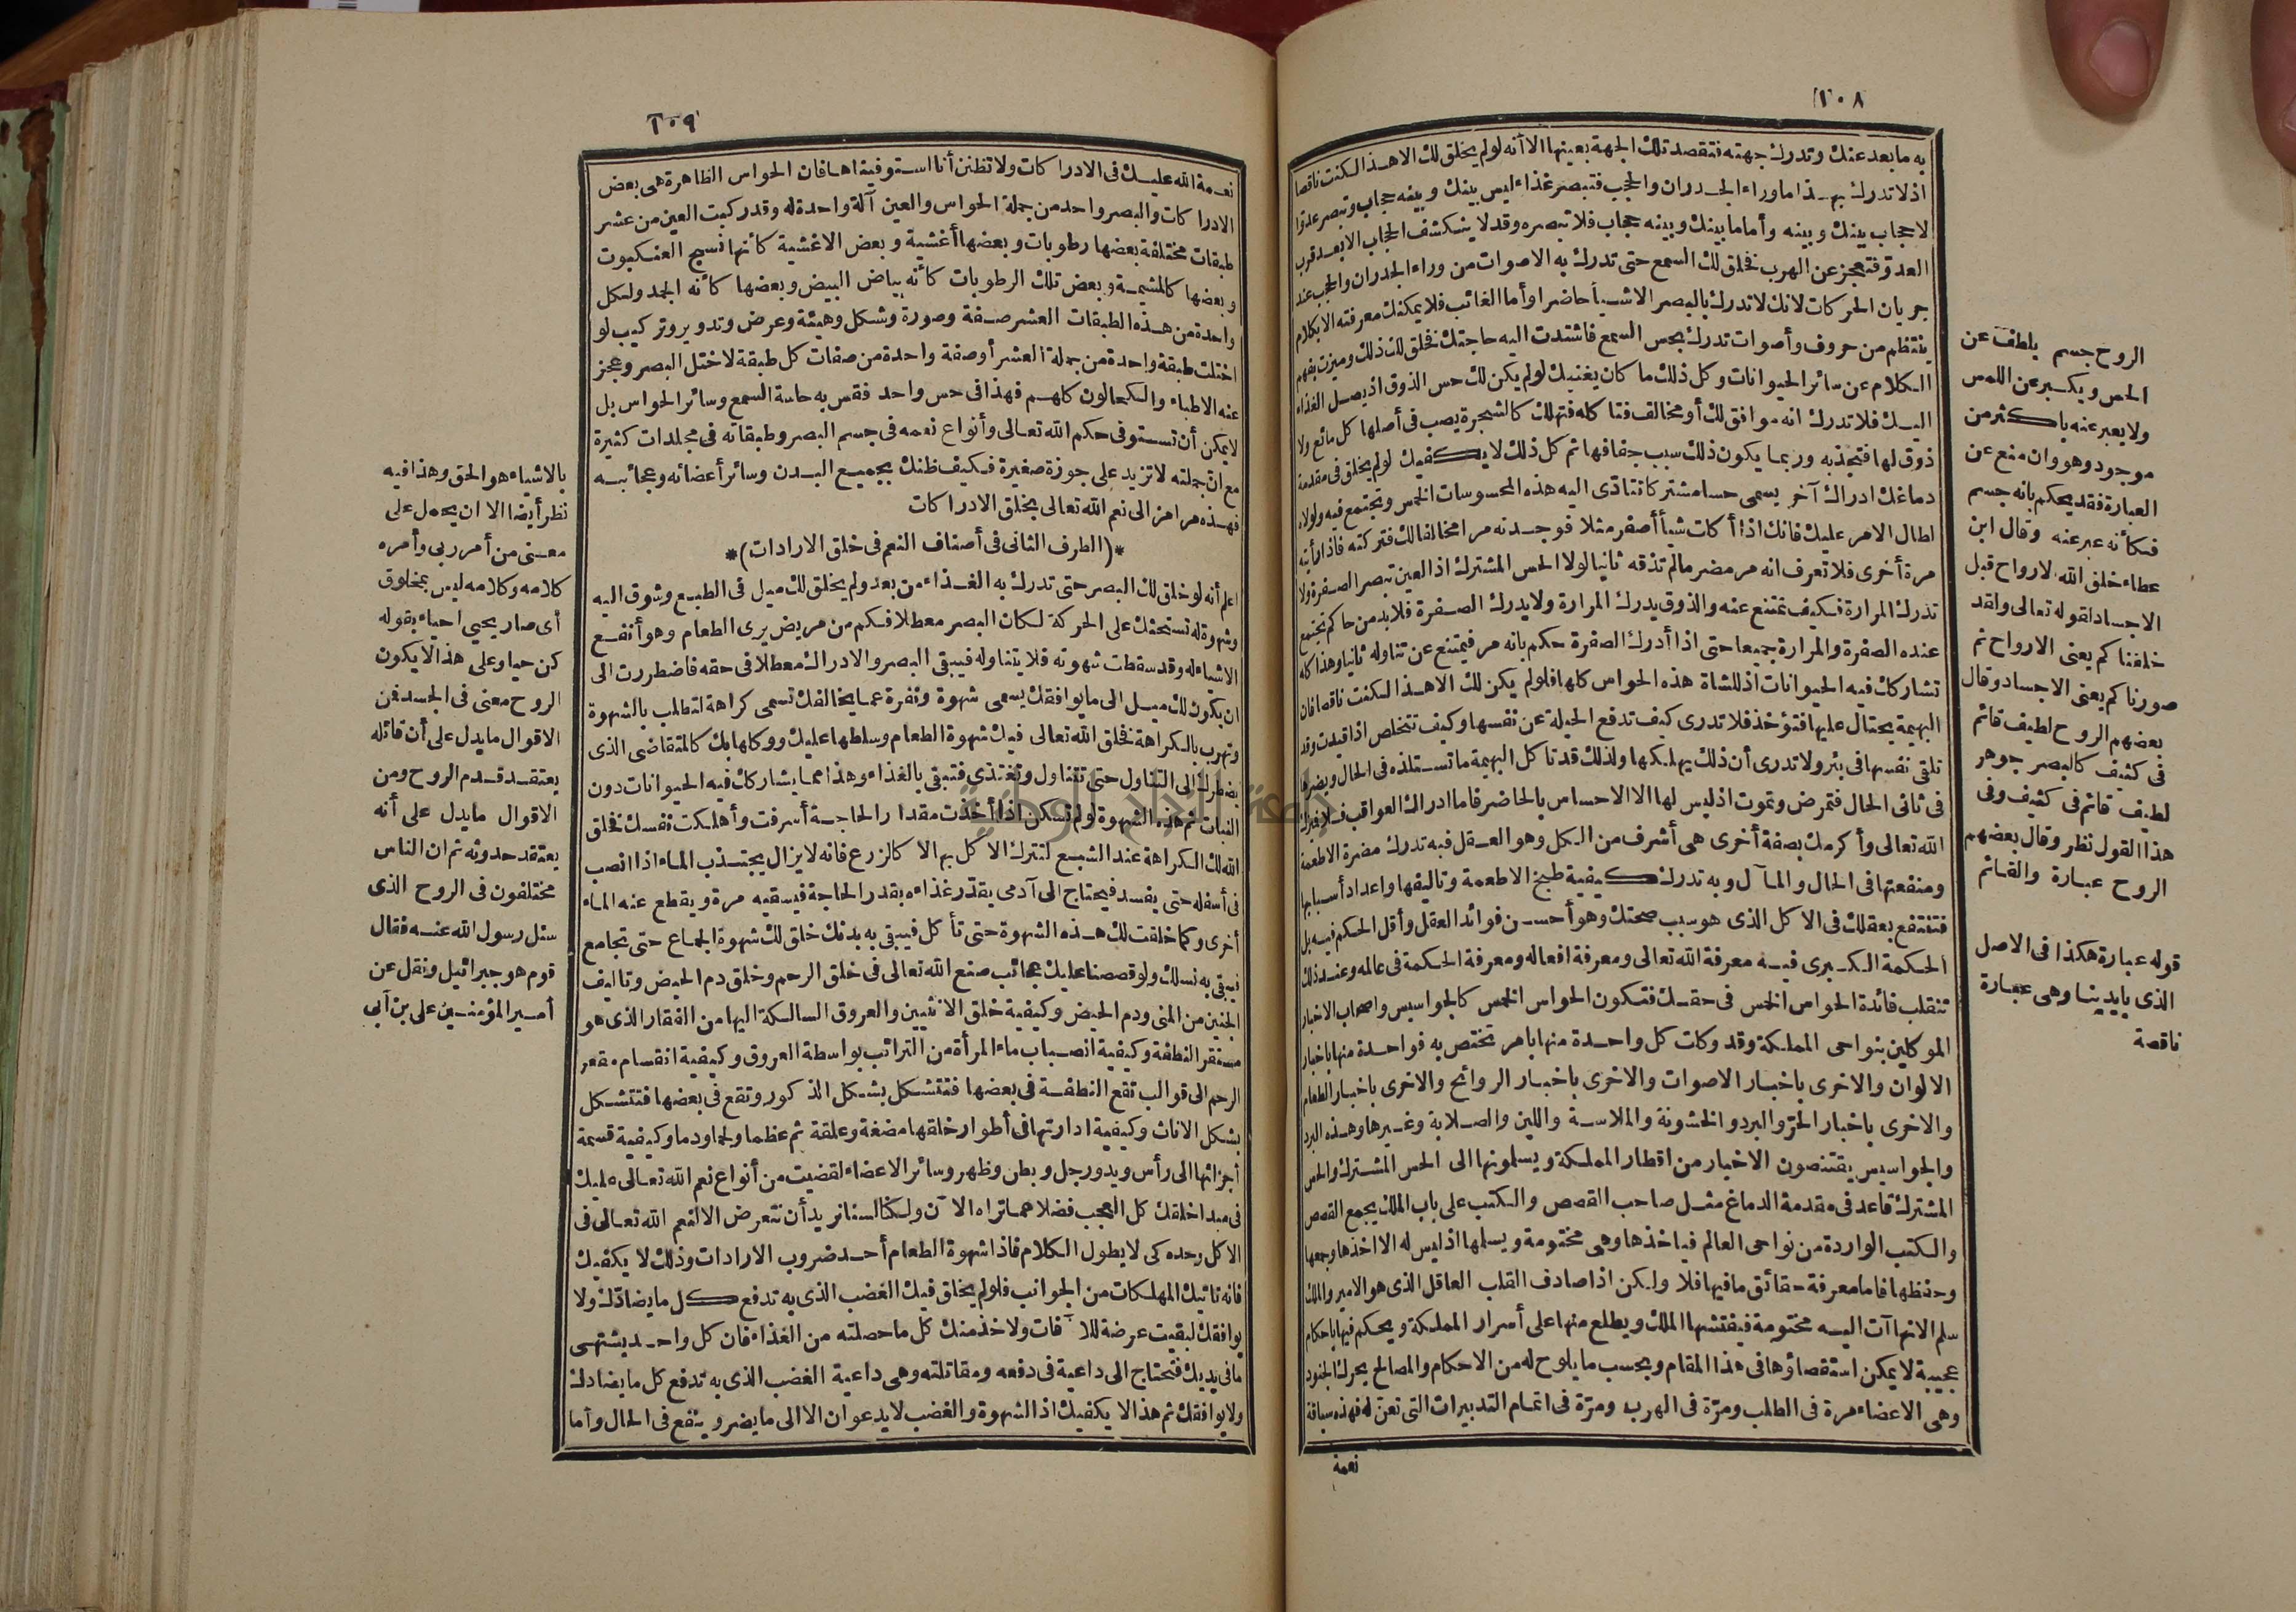 ١٠٨
به ما بعد عنك وتدرك جهته فتقصد تلك الجهة بعينها الا أنه لو لم يخلق لك الا هذا لكنت ناقصا
اذ لا تدرك بهذا ما وراء الجدران والحجب فتبصر غذاء ليس بينك وبينه حجاب وتبصر عدوّا
لا حجاب بينك وبينه وأما ما بينك وبينه حجاب فلا تبصره وقد لا ينكشف الحجاب الا بعد قرب
العدوّ فتعجز عن الهرب فخلق لك السمع حتى تدرك به الاصوات من وراء الجدران والحجب عند
جريان الحركات لانك لا تدرك بالبصر الا شيأ حاضرا وأما الغائب فلا يمكنك معرفته الا بكلام
ينتظم من حروف وأصوات تدرك بحس السمع فاشتدت اليه حاجتك فخلق لك ذلك وميزت بفهم
الكلام عن سائر الحيوانات وكل ذلك ما كان يغنيك لو لم يكن لك حس الذوق اذ يصل الغذاء
اليك فلا تدرك انه موافق لك أو مخالف فتاكله فتهلك كالشجرة يصب فى أصلها كل مائع ولا
ذوق لها فتجذبه وربما يكون ذلك سبب جفافها ثم كل ذلك لا يكفيك لو لم يخلق فى مقدمة
دماغك ادراك آخر يسمى حسا مشتركا تتأدّى اليه هذه المحسوسات الخمس وتجتمع فيه ولولاه
لطال الامر عليك فانك اذا أكات شيأ أصفر مثلا فوجدته مرا مخالفا لك فتركته فاذا رأيته
مرة أخرى فلا تعرف انه مر مضر ما لم تذقه ثانيا لولا الحس المشترك اذ العين تبصر الصفرة ولا
تدرك المرارة فكيف تمتنع عنه والذوق يدرك المرارة ولا يدرك الصفرة فلا بد من حاكم تجتمع
عنده الصفرة والمرارة جميعا حتى اذا أدرك الصفرة حكم بانه مر فيمتنع عن تناوله ثانيا وهذا كله
تشاركك فيه الحيوانات اذ للشاة هذه الحواس كلها فلو لم يكن لك الا هذا لكنت ناقصا فان
البهيمة يحتال عليها فتؤخذ فلا تدرى كيف تدفع الحيلة عن نفسها وكيف تتخلص اذا قيدت وقد
تلقى نفسها فى بئر ولا تدرى أن ذلك يهلكها ولذلك قد تاكل البهيمة ما تستلذه فى الحال ويضرها
فى ثانى الحال فتمرض وتموت اذ ليس لها الا الاحساس بالحاضر فاما ادراك العواقب فلا فيزك
الله تعالى وأكرمك بصفة أخرى هى أشرف من الكل وهو العقل فبه تدرك مضرة الاطعمة
ومنفعتها فى الحال والمآل وبه تدرك كيفية طبخ الاطعمة وتاليفها واعداد أسبابها
فتنتفع بعقلك فى الاكل الذى هو سبب صحتك وهو أحسن فوائد العقل وأقل الحكم فيه بل
الحكمة الكبرى فيه معرفة الله تعالى ومعرفة افعاله ومعرفة الحكمة فى عالمه وعند ذلك
تنقلب فائدة الحواس الخمس فى حقك فتكون الحواس الخمس كالجواسيس واصحاب الاخبار
الموكلين بنواحى المملكة وقد وكات كل واحدة منها بامر تختص به فواحدة منها باخبار
الالوان والاخرى باخبار الاصوات والاخرى باخبار الروائح والاخرى باخبار الطعام
والاخرى باخبار الحرّ والبرد والخشونة والملاسة واللين والصلابة وغيرها وهذه البرد
والجواسيس يقتنصون الاخبار من اقطار المملكة ويسلمونها الى الحس المشترك والحس
المشترك قاعد فى مقدمة الدماغ مثل صاحب القصص والكتب على باب الملك يجمع القصص
والكتب الواردة من نواحى العالم فياخذها وهى مختومة ويسلمها اذ ليس له الا اخذها وجمعها
وحفظها فاما معرفة حقائق ما فيها فلا ولكن اذا صادف القلب العاقل الذى هو الامير والملك
سلم الانهاآت اليه مختومة فيفتشها الملك ويطلع منها على أسرار المملكة ويحكم فيها باحكام
عجيبة لا يمكن استقصاؤها فى هذا المقام وبحسب ما يلوح له من الاحكام والمصالح يحرك الجنود
وهى الاعضاء مرة فى الطلب ومرّة فى الهرب ومرّة فى اتمام التدبيرات التى تعنّ له فهذه سياقة
نعمة
الروح جسم يلطف عن
الحس ويكبر عن اللمس
ولا يعبر عنه باكثر من
موجود وهو وان منع عن
العبارة فقد يحكم بانه جسم
فكأنه عبر عنه وقال ابن
عطاء خلق الله الارواح قبل
الاجساد لقوله تعالى ولقد
خلقناكم يعنى الارواح ثم
صورناكم يعنى الاجساد وقال
بعضهم الروح لطيف قائم
فى كثيف كالبصر جوهر
لطيف قائم فى كثيف وفى
هذا القول نظر وقال بعضهم
الروح عبارة والقائم
قوله عبارة هكذا فى الاصل
الذى بايدينا وهى عبارة
ناقصة
١٠٩
نعمة الله عليك فى الادراكات ولا تظنن أنا استوفيناها فان الحواس الظاهرة هى بعض
الادراكات والبصر واحد من جملة الحواس والعين آلة واحدة له وقد ركبت العين من عشر
طبقات مختلفة بعضها رطوبات وبعضها أغشية وبعض الاغشية كأنها نسيج العنكبوت
وبعضها كالمشيمة وبعض تلك الرطوبات كأنه بياض البيض وبعضها كأنه الجمد ولكل
واحدة من هذه الطبقات العشر صفة وصورة وشكل وهيئة وعرض وتدوير وتركيب لو
اختلت طبقة واحدة من جملة العشر أو صفة واحدة من صفات كل طبقة لاختل البصر وعجز
عنه الاطباء والكحالون كلهم فهذا فى حس واحد فقس به حاسة السمع وسائر الحواس بل
لا يمكن أن تستوفى حكم الله تعالى وأنواع نعمه فى جسم البصر وطبقاته فى مجلدات كثيرة
مع ان جملته لا تزيد على جوزة صغيرة فكيف ظنك بجميع البدن وسائر أعضائه وعجائبه
فهذه مرامز الى نعم الله تعالى بخلق الادراكات
*(الطرف الثانى فى أصناف النعم فى خلق الارادات)*
اعلم أنه لو خلق لك البصر حتى تدرك به الغذاء من بعد ولم يخلق لك ميل فى الطبع وشوق اليه
وشهوة له تستحثك على الحركة لكان البصر معطلا فكم من مريض يرى الطعام وهو أنفع
الاشياء له وقد سقطت شهوته فلا يتناوله فيبقى البصر والادراك معطلا فى حقه فاضطررت الى
ان يكون لك ميل الى ما يوافقك يسمى شهوة ونفرة عما يخالفك تسمى كراهة لتطلب بالشهوة
وتهرب بالكراهة فخلق الله تعالى فيك شهوة الطعام وسلطها عليك ووكلها بك كالمتقاضى الذى
يضطرك الى التناول حتى تتناول وتغتذى فتبقى بالغذاء وهذا مما يشاركك فيه الحيوانات دون
النبات ثم هذه الشهوة لو لم تسكن اذا أخذت مقدار الحاجة أسرفت وأهلكت نفسك فخلق
الله لك الكراهة عند الشبع لتترك الاكل بها لا كالزرع فانه لا يزال يجتذب الماء اذا انصب
فى أسفله حتى يفسد فيحتاج الى آدمى يقدّر غذاءه بقدر الحاجة فيسقيه مرة ويقطع عنه الماء
أخرى وكما خلقت لك هذه الشهوة حتى تأكل فيبقى به بدنك خلق لك شهوة الجماع حتى تجامع
فيبقى به نسلك ولو قصصنا عليك عجائب صنع الله تعالى فى خلق الرحم وخلق دم الحيض وتاليف
الجنين من المنى ودم الحيض وكيفية خلق الانثيين والعروق السالكة اليها من الفقار الذى هو
مستقر النطفة وكيفية انصباب ماء المرأة من الترائب بواسطة العروق وكيفية انقسام مقعر
الرحم الى قوالب تقع النطفة فى بعضها فتتشكل بشكل الذكور وتقع فى بعضها فتتشكل
بشكل الاناث وكيفية ادارتها فى أطوار خلقها مضغة وعلقة ثم عظما ولحما ودما وكيفية قسمة
أجزائها الى رأس ويد ورجل وبطن وظهر وسائر الاعضاء لقضيت من أنواع نعم الله تعالى عليك
فى مبدا خلقك كل العجب فضلا عما تراه الآن ولكنا لسنا نريد أن نتعرض الا لنعم الله تعالى فى
الاكل وحده كى لا يطول الكلام فاذا شهوة الطعام أحد ضروب الارادات وذلك لا يكفيك
فانه تاتيك المهلكات من الجوانب فلو لم يخلق فيك الغضب الذى به تدفع كل ما يضادّك ولا
يوافقك لبقيت عرضة للآفات ولاخذ منك كل ما حصلته من الغذاء فان كل واحد يشتهى
ما فى يديك فتحتاج الى داعية فى دفعه ومقاتلته وهى داعية الغضب الذى به تدفع كل ما يضادك
ولا يوافقك ثم هذا لا يكفيك اذ الشهوة والغضب لا يدعوان الا الى ما يضر وينفع فى الحال وأما
بالاشياء هو الحق وهذا فيه
نظر أيضا الا ان يحمل على
معنى من أمر ربى وأمره
كلامه وكلامه ليس بمخلوق
أى صار يحيى احياء بقوله
كن حيا وعلى هذا لا يكون
الروح معنى فى الجسد فمن
الاقوال ما يدل على أن قائله
يعتقد قدم الروح ومن
الاقوال ما يدل على أنه
يعتقد حدوثه ثم ان الناس
مختلفون فى الروح الذى
سئل رسول الله عنه فقال
قوم هو جبرائيل ونقل عن
أمير المؤمنين على بن أبى
جامعة النجاح الوطنية